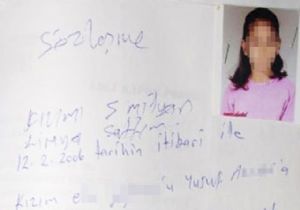 Sözleşme
Kızımı 5 milyar
Liraya sattım
12.2.2006 tarihin itibari ile
Kızım e 'u Yusuf A 'a